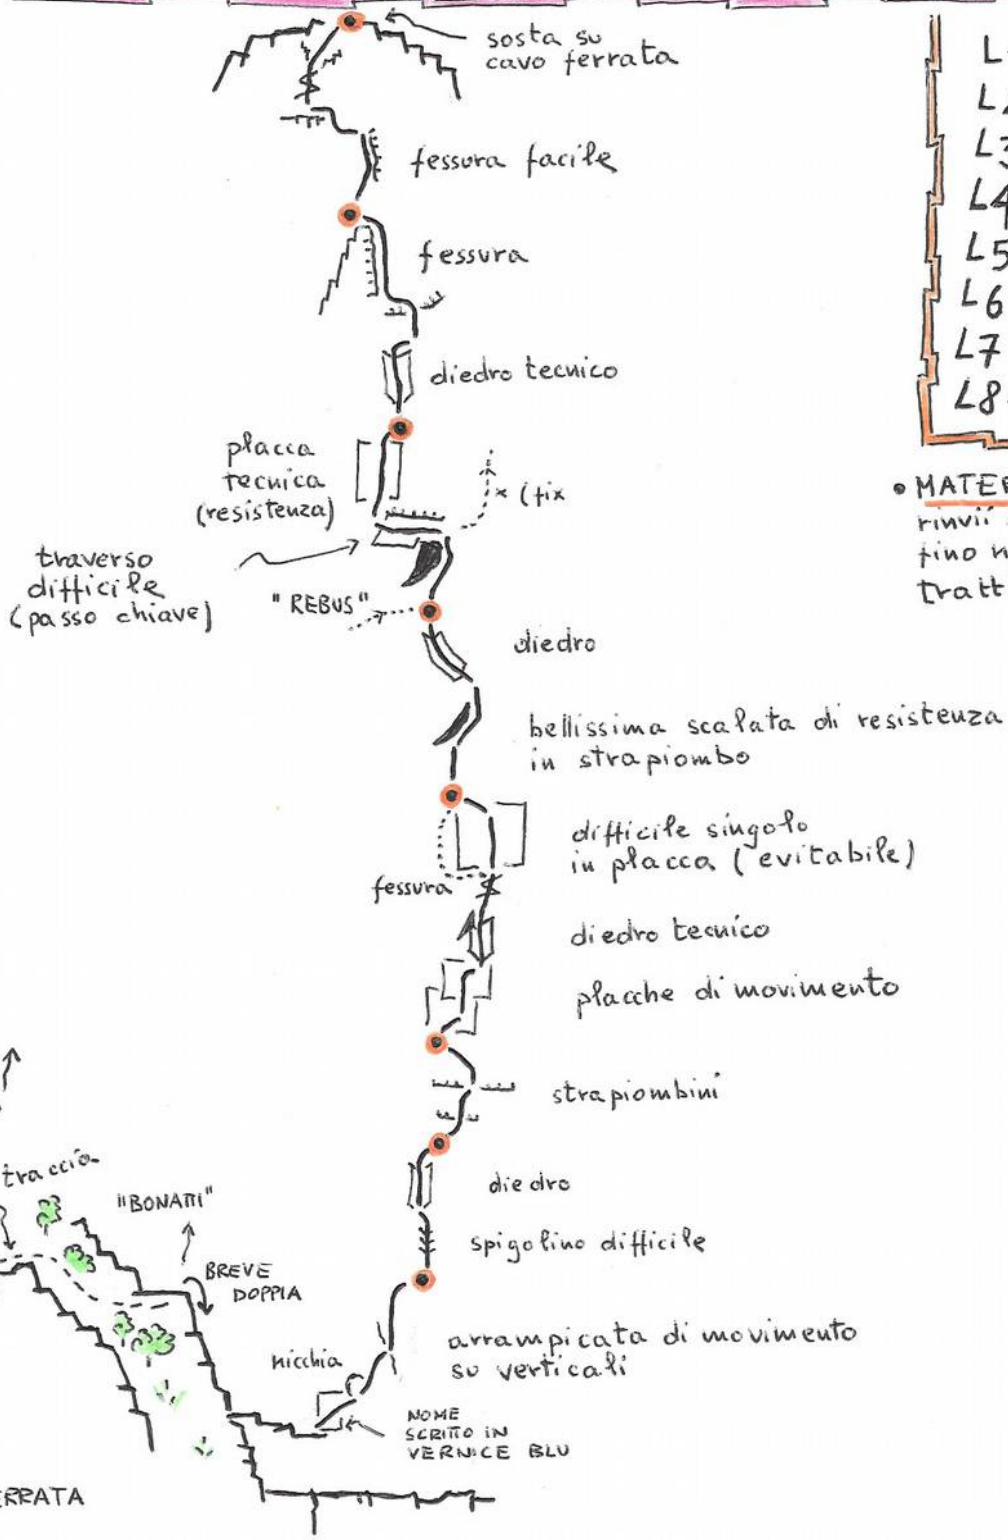 sosta su
cavo ferrata
fessura facile
fessura
diedro tecnico
placca
tecnica
(resistenza)
x (fix
traverso
difficile
(passo chiave)
"REBUS"
diedro
bellissima scalata di resistenza
in strapiombo
difficile singolo
in placca (evitabile)
fessura
diedro tecnico
placche di movimento
strapiombini
traccia
"BONATTI"
diedro
spigolino difficile
BREVE
DOPPIA
arrampicata di movimento
su verticali
nicchia
NOME
SCRITTO IN
VERNICE BLU
ERRATA
L
L2
L3
L4
L5
L6
L7
L8
• MATE
rinvii
fino
tratt